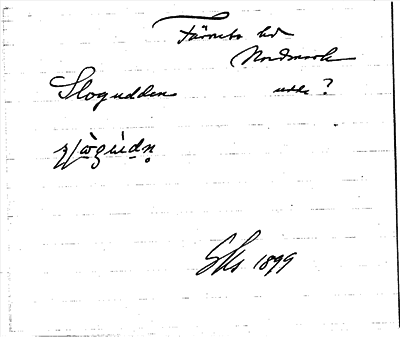 Färnebo hd
Nordmark
Slogudden udde?
SKs 1899